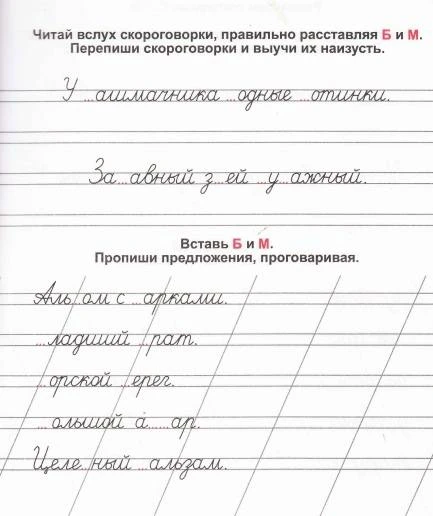 Читай вслух скороговорки, правильно расставляя Б и М.
Перепиши скороговорки и выучи их наизусть.
У ...ашмачника ...одные ...отинки.
За...авный з...ей ...у...ажный.
Вставь Б и М.
Пропиши предложения, проговаривая.
Аль...ом с ...арками.
...ладший ...рат.
...орской ...ерег.
...ольшой а......ар.
Целе...ный ...альзам.